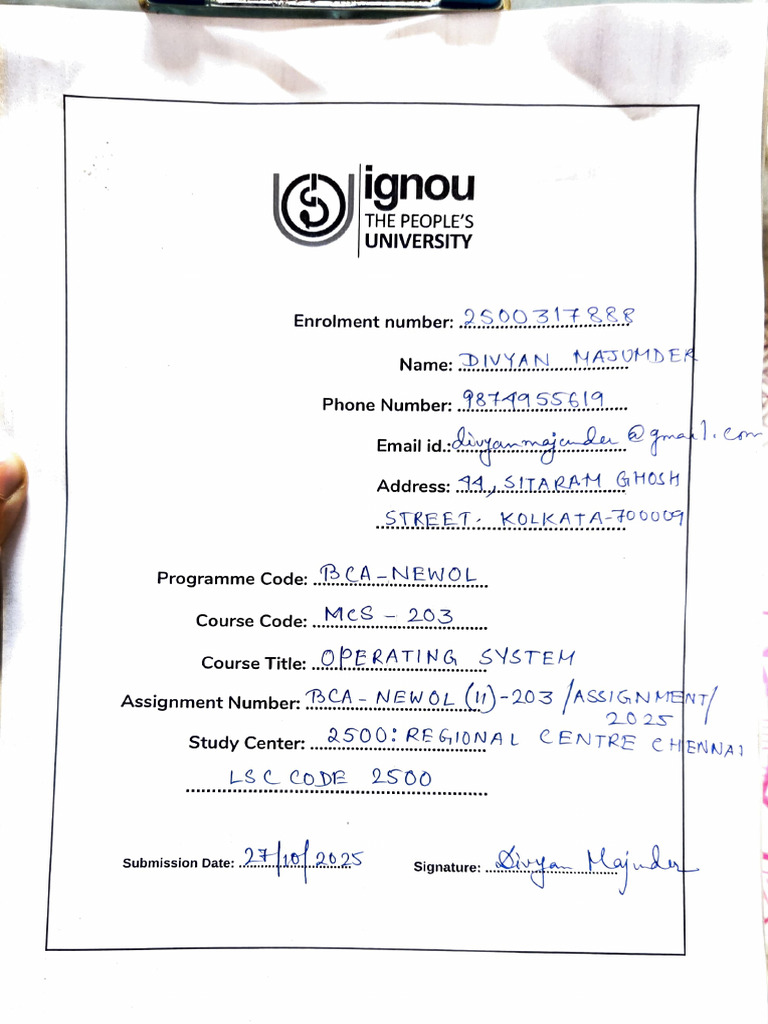 ignou
THE PEOPLE'S
UNIVERSITY
Enrolment number: 2500317888
Name: DIVYAN MAJUMDER
Phone Number: 9874955619
Email id.: divyanmajumder@gmail.com
Address: 44, SITARAM GHOSH
STREET. KOLKATA-700009
Programme Code: BCA-NEWOL
Course Code: MCS - 203
Course Title: OPERATING SYSTEM
Assignment Number: BCA- NEWOL (II)-203 /ASSIGNMENT/
2025
Study Center: 2500: REGIONAL CENTRE CHENNAI
LSC CODE 2500
Submission Date: 27/10/2025 Signature: Divyan Majumder